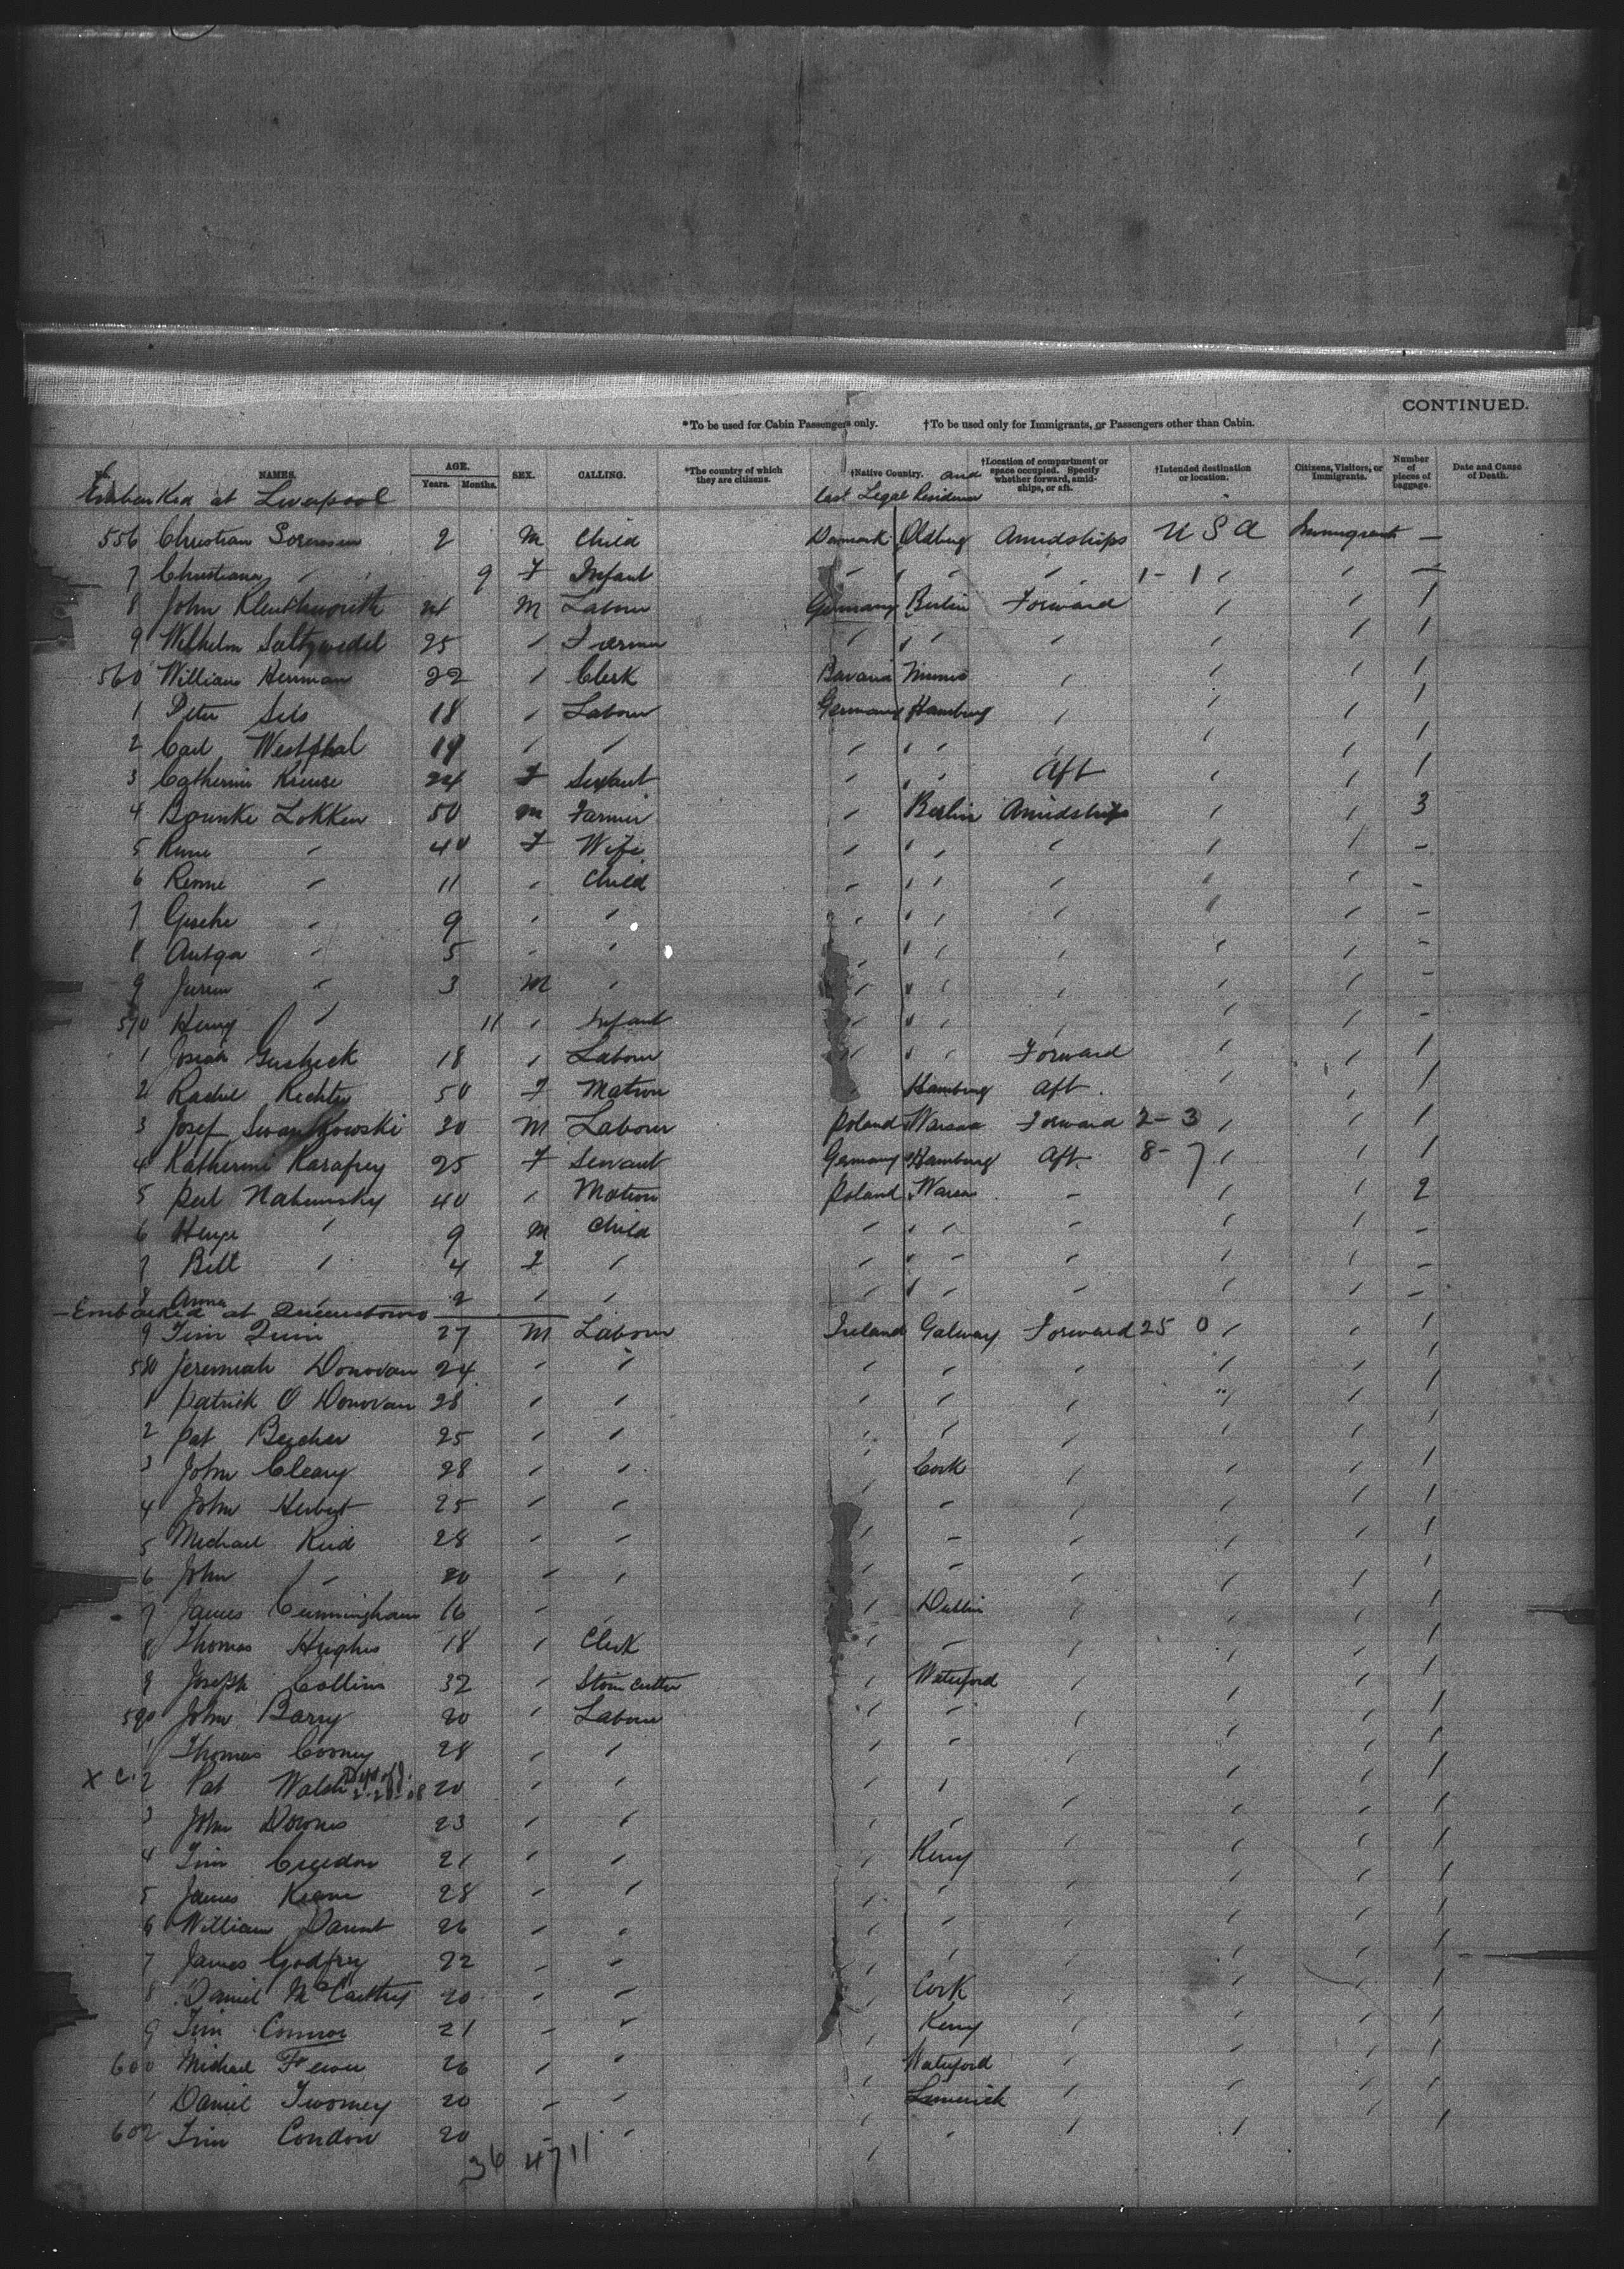 CONTINUED.
*To be used for Cabin Passengers only. †To be used only for Immigrants, or Passengers other than Cabin.
No. NAMES. AGE. Years. Months. SEX. CALLING. *The country of which they are citizens. †Native Country. and last Legal Residence †Location of compartment or space occupied. Specify whether forward, amidships, or aft. †Intended destination or location. Citizens, Visitors, or Immigrants. Number of pieces of baggage. Date and Cause of Death.
Embarked at Liverpool
556 Christian Sorensen 2 M Child Denmark Oldberg Amidships U S A Immigrant —
7 Christiana " 9 F Infant " " " " 1 - 1 " " —
8 John 24 M Labour Germany Berlin Forward " " 1
9 Wilhelm Saltzwedel 25 " Farmer " " " " " " 1
560 William Herman 22 " Clerk Bavaria " " " 1
1 Peter Sels 18 " Labour Germany Hamburg " " " 1
2 Carl Westphal 19 " " " " " " " " 1
3 Catherine Kruse 24 F Servant " " " Aft " " 1
4 Lokken 50 M Farmer " Berlin Amidships " " 3
5 " 40 F Wife " " " " " " —
6 " 11 " Child " " " " " " —
7 Gesche " 9 " " " " " " " " —
8 Antga " 5 " " " " " " " " —
9 Juren " 3 M " " " " " " " —
570 Henry " 11 " Infant " " " " " " —
1 Josiah 18 " Labour " " " Forward " " 1
2 Rachel Richter 50 F Matron Hamburg Aft " " 1
3 Josef Swankowski 20 M Labour Poland Warsaw Forward 2 - 3 " " 1
4 Katherine Karafrey 25 F Servant Germany Hamburg Aft 8 - 7 " " 1
5 Perl Nahemsky 40 " Matron Poland Warsaw " " " 2
6 " 9 M Child " " " " " " —
7 Bell " 4 F " " " " " " " —
8 Anna " 2 " " " " " " " " —
— Embarked at Queenstown
9 Tim Quin 27 M Labour Ireland Galway Forward 25 0 " " 1
580 Jeremiah Donovan 24 " " " " " " " 1
1 Patrick O Donovan 28 " " " " " " " 1
2 Pat 25 " " " " " " " 1
3 John Cleary 28 " " " Cork " " " 1
4 John Herbert 25 " " " " " " " 1
5 Michael Reid 28 " " " " " " " 1
6 John " 20 " " " " " " " 1
7 James Cunningham 16 " " " Dublin " " " 1
8 Thomas Hughes 18 " Clerk " " " " " 1
9 Joseph Collins 32 " Stone cutter " Waterford " " " 1
590 John Barry 20 " Labour " " " " " 1
1 Thomas Cooney 28 " " " " " " " 1
X C. 2 Pat Walsh 20 " " " " " " " 1
3 John Downes 23 " " " " " " " 1
4 Tim Creedon 21 " " " Kerry " " " 1
5 James Keane 28 " " " " " " " 1
6 William Daunt 26 " " " " " " " 1
7 James Godfrey 22 " " " " " " " 1
8 Daniel McCarthy 20 " " " Cork " " " 1
9 Tim Connor 21 " " " Kerry " " " 1
600 Michael 26 " " " Waterford " " " 1
1 Daniel Twomey 20 " " " Limerick " " " 1
602 Tim Condon 20 " " " " " " " 1
36 47 11